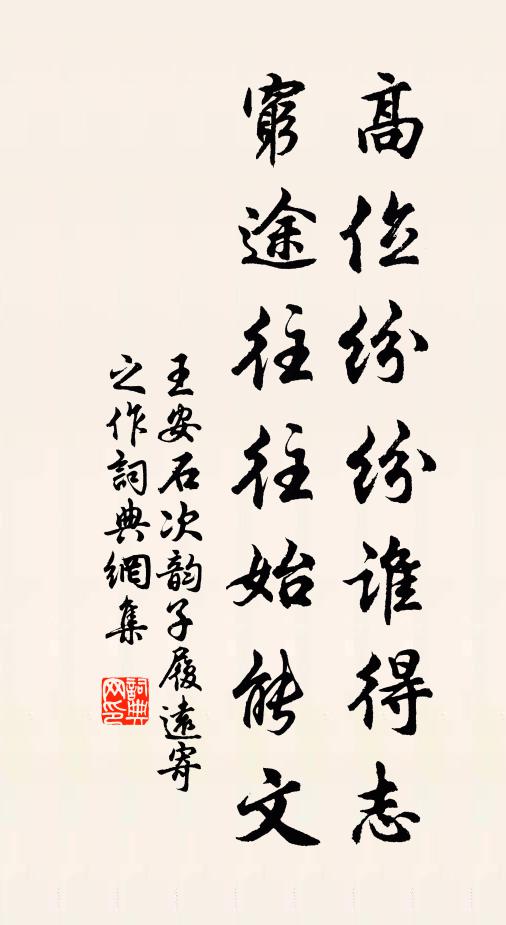 高位紛紛誰得志
窮途往往始能文
王安石次韵子履遠寄
之作詞典網集
詞典
网印